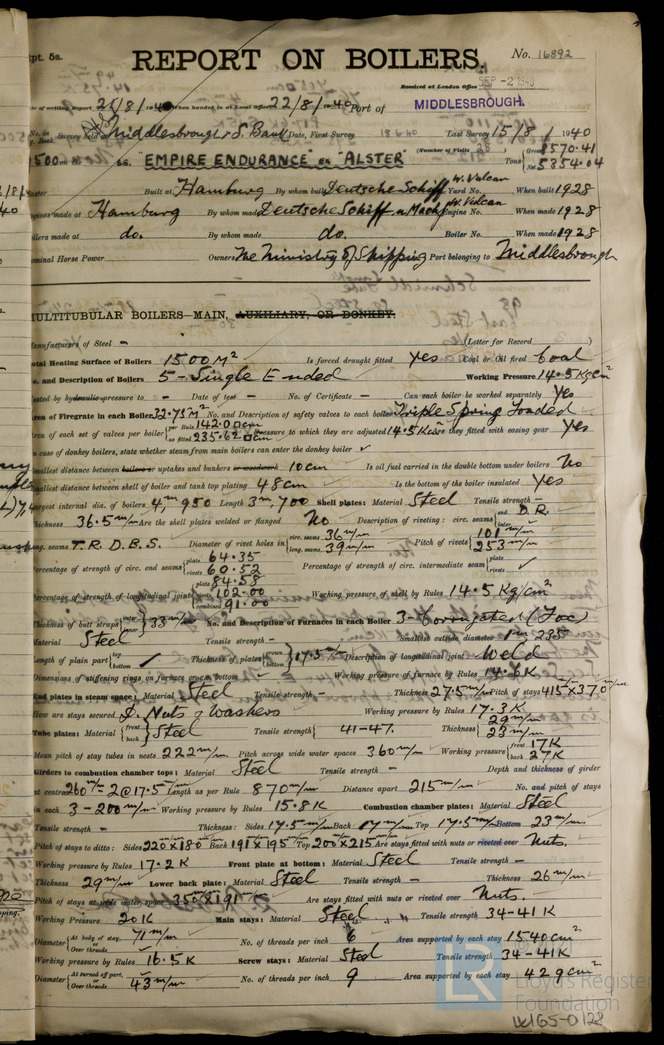 Rpt. 5a.
REPORT ON BOILERS.
No. 16892
Received at London Office SEP -2 1940
Date of writing Report 21/8/1940 When handed in at Local Office 22/8/1940 Port of MIDDLESBROUGH.
Middlesbrough & S. Bank Date, First Survey 18.6.40 Last Survey 15/8/1940
(Number of Visits 28)
"EMPIRE ENDURANCE" ex "ALSTER"
Tons Gross 8570.41
Net 5354.04
Built at Hamburg By whom built Deutsche Schiff W. Vulcan Yard No. When built 1928
Engines made at Hamburg By whom made Deutsche Schiff u Masch W. Vulcan Engine No. When made 1928
Boilers made at do. By whom made do. Boiler No. When made 1928
Nominal Horse Power Owners The Ministry of Shipping Port belonging to Middlesbrough
MULTITUBULAR BOILERS—MAIN, AUXILIARY, OR DONKEY.
Manufacturers of Steel - (Letter for Record )
Total Heating Surface of Boilers 1500 M² Is forced draught fitted Yes Coal or Oil fired Coal
No. and Description of Boilers 5 - Single Ended Working Pressure 14.5 Kg/cm²
Tested by hydraulic pressure to - Date of test - No. of Certificate - Can each boiler be worked separately Yes
Area of Firegrate in each Boiler 12.73 M² No. and Description of safety valves to each boiler Triple Spring Loaded
Area of each set of valves per boiler {per Rule 142.0 □cm as fitted 235.62 □cm Pressure to which they are adjusted 14.5 K Are they fitted with easing gear Yes
In case of donkey boilers, state whether steam from main boilers can enter the donkey boiler ✓
Smallest distance between boilers or uptakes and bunkers or woodwork 10 cm Is oil fuel carried in the double bottom under boilers No
Smallest distance between shell of boiler and tank top plating 48 cm Is the bottom of the boiler insulated Yes
Largest internal dia. of boilers 4m, 950 Length 3m, 700 Shell plates: Material Steel Tensile strength -
Thickness 36.5 m/m Are the shell plates welded or flanged No Description of riveting: circ. seams {end D.R. inter.
long. seams T.R.D.B.S. Diameter of rivet holes in {circ. seams 36 m/m long. seams 39 m/m Pitch of rivets {101 m/m 253 m/m
Percentage of strength of circ. end seams {plate 64.35 rivets 60.52 Percentage of strength of circ. intermediate seam {plate rivets ✓
Percentage of strength of longitudinal joint {plate 84.58 rivets 102.00 combined 91.00 Working pressure of shell by Rules 14.5 Kg/cm²
Thickness of butt straps {outer inner} 33 m/m No. and Description of Furnaces in each Boiler 3-Corrugated (Fox)
Material Steel Tensile strength - Smallest outside diameter 1m 235
Length of plain part {top bottom ✓ Thickness of plates {crown bottom} 17.5 m/m Description of longitudinal joint Weld
Dimensions of stiffening rings on furnace or c.c. bottom ✓ Working pressure of furnace by Rules 14.6 K
End plates in steam space: Material Steel Tensile strength - Thickness 27.5 m/m Pitch of stays 415 x 370 m/m
How are stays secured D. Nuts & Washers Working pressure by Rules 17.3 K
Tube plates: Material {front back} Steel Tensile strength 41-47. Thickness {29 m/m 23 m/m
Mean pitch of stay tubes in nests 222 m/m Pitch across wide water spaces 360 m/m Working pressure {front 17 K back 27 K
Girders to combustion chamber tops: Material Steel Tensile strength - Depth and thickness of girder
at centre 260 m/m - 2 @ 17.5 m/m Length as per Rule 870 m/m Distance apart 215 m/m No. and pitch of stays
in each 3-200 m/m Working pressure by Rules 15.8 K Combustion chamber plates: Material Steel
Tensile strength - Thickness: Sides 17.5 m/m Back 17 m/m Top 17.5 m/m Bottom 23 m/m
Pitch of stays to ditto: Sides 220 x 180 Back 191 x 195 Top 200 x 215 Are stays fitted with nuts or riveted over Nuts.
Working pressure by Rules 17.2 K Front plate at bottom: Material Steel Tensile strength -
Thickness 29 m/m Lower back plate: Material Steel Tensile strength - Thickness 26 m/m
Pitch of stays at wide water space 350 x 191 m/m Are stays fitted with nuts or riveted over Nuts.
Working Pressure 20 K Main stays: Material Steel Tensile strength 34-41 K
Diameter {At body of stay, Over threads 71 m/m No. of threads per inch 6 Area supported by each stay 1540 cm²
Working pressure by Rules 16.5 K Screw stays: Material Steel Tensile strength 34-41 K
Diameter {At turned off part, or Over threads 43 m/m No. of threads per inch 9 Area supported by each stay 429 cm²
LR Lloyd's Register
Foundation
W165-0128